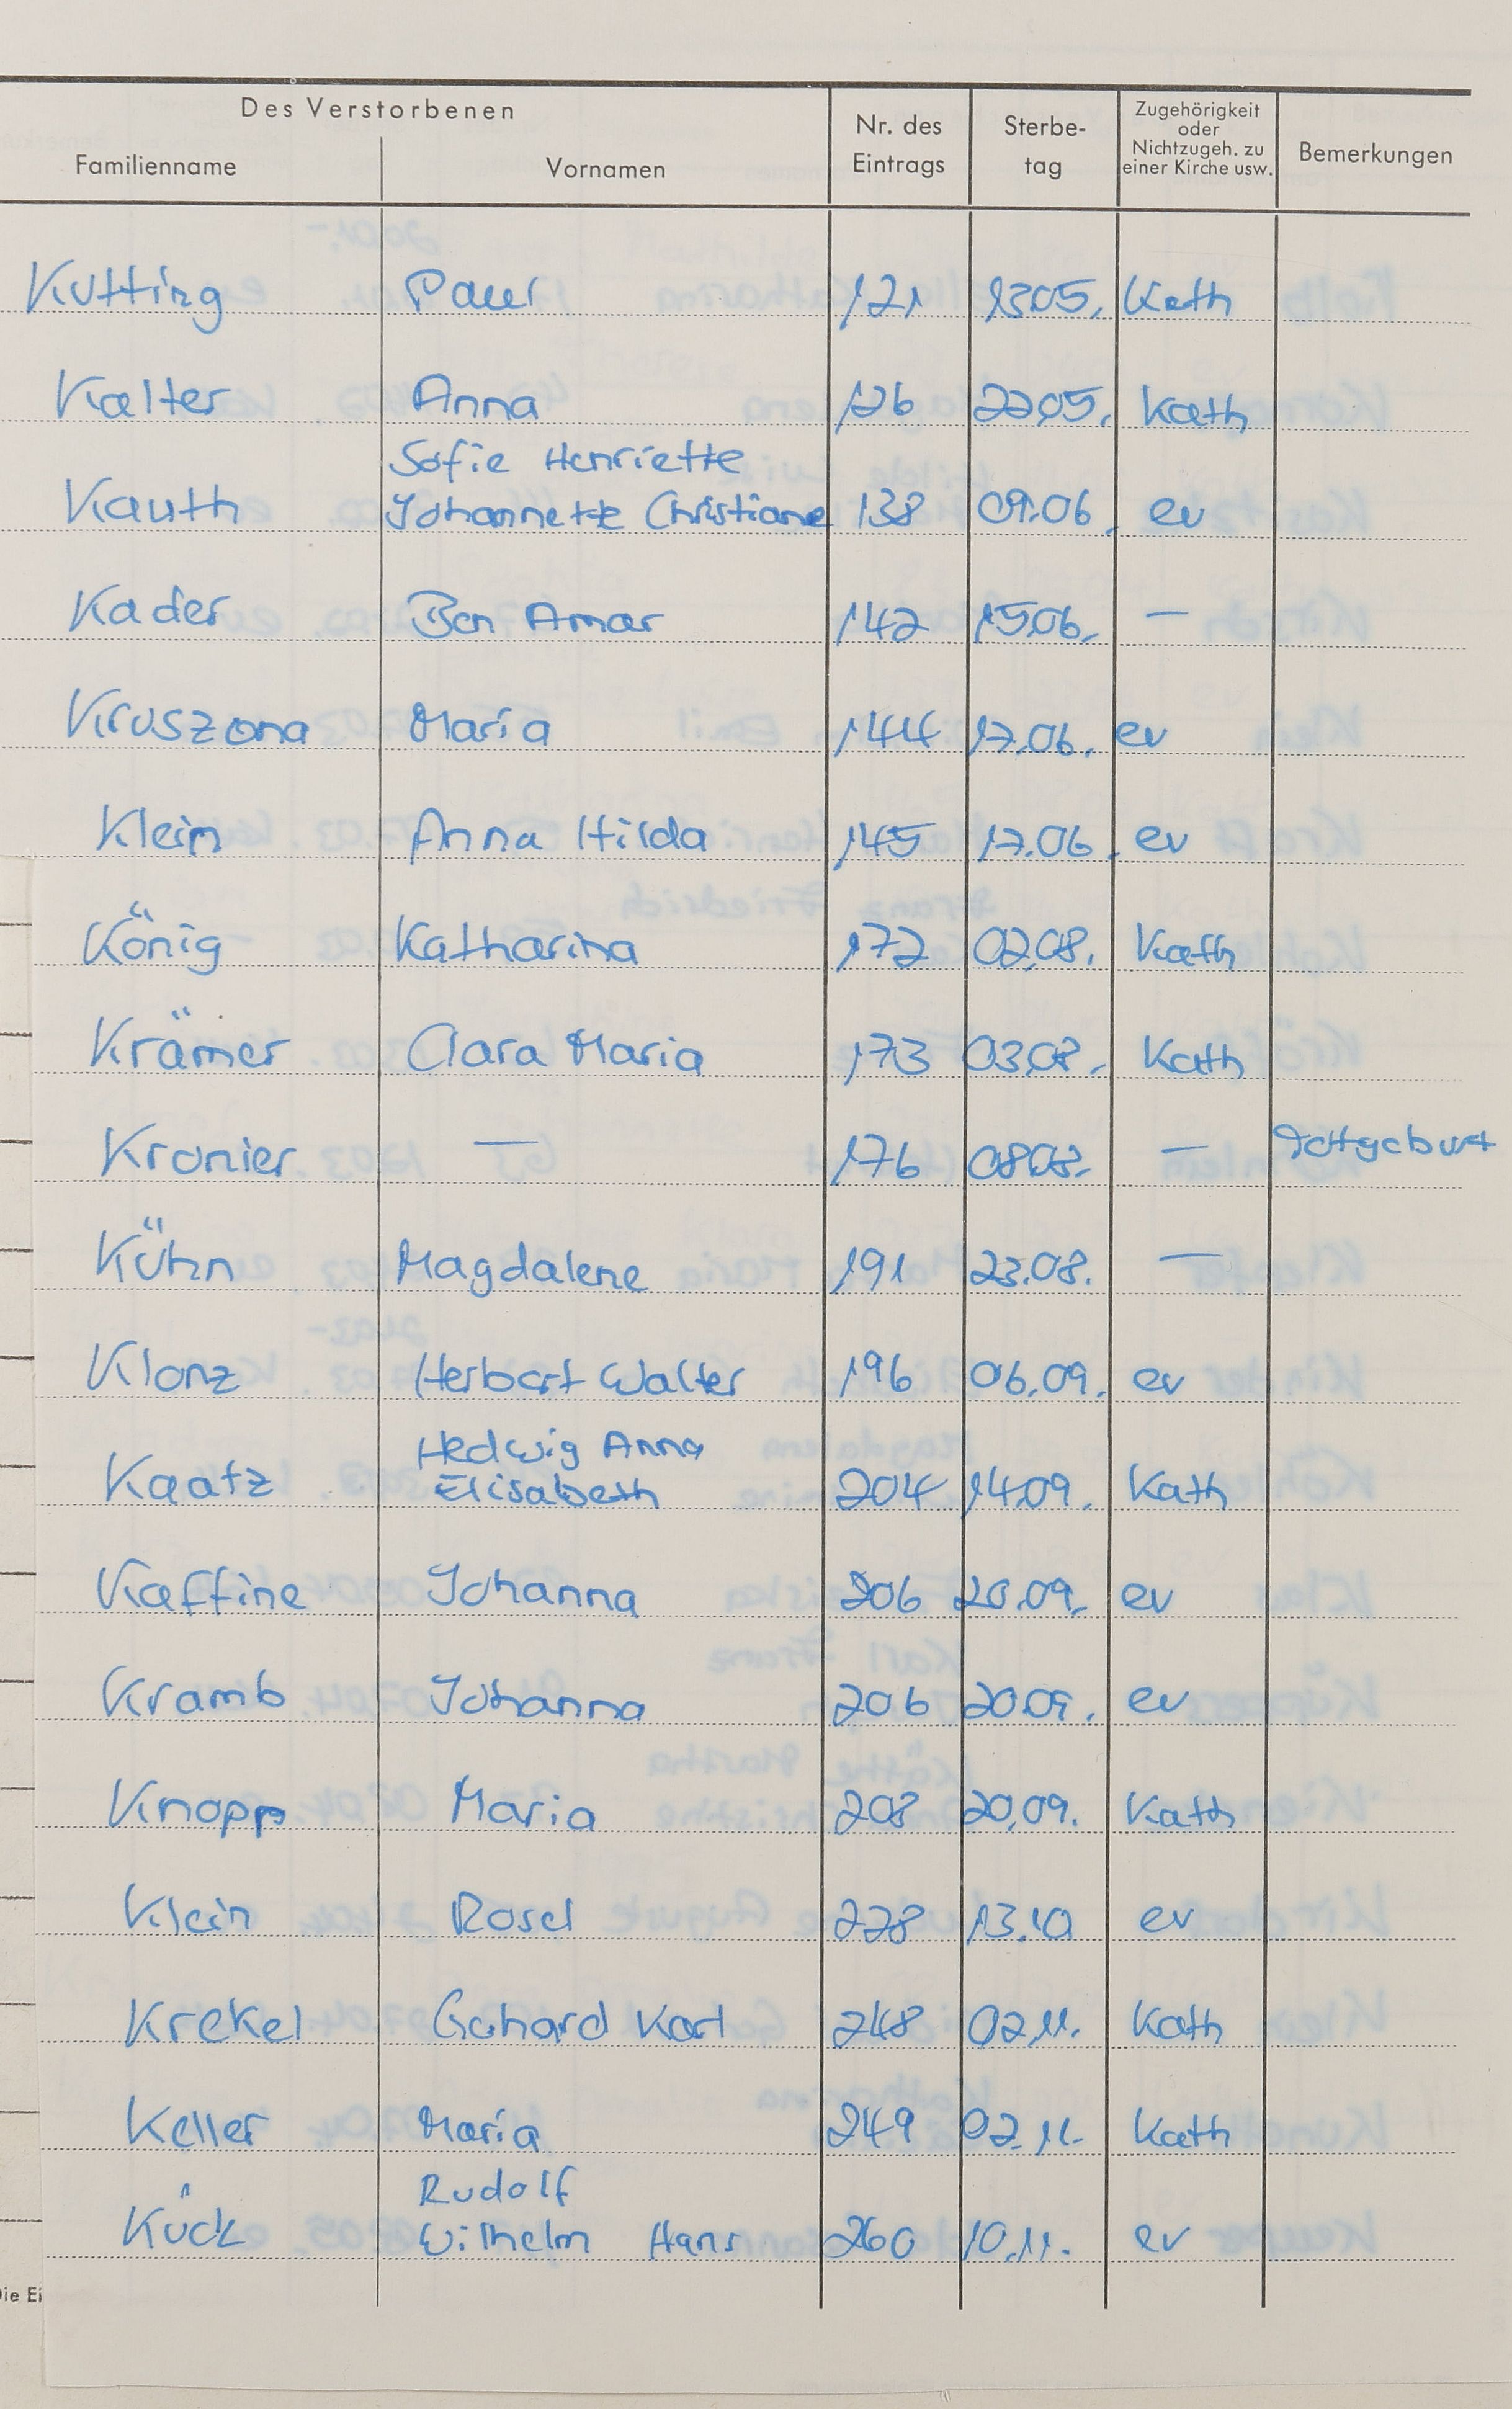 Des Verstorbenen
Familienname Vornamen Nr. des Eintrags Sterbe-tag Zugehörigkeit oder Nichtzugeh. zu einer Kirche usw. Bemerkungen
Kutting Paul 121 13.05. Kath
Kalter Anna 126 22.05. Kath
Sofie Henriette
Kauth Johannette Christiane 138 09.06. ev
Kader Ben Amar 142 15.06. —
Kruszona Maria 144 17.06. ev
Klein Anna Hilda 145 17.06. ev
König Katharina 172 02.08. Kath
Krämer Clara Maria 173 03.08. Kath
Kronier — 176 08.08. — Totgeburt
Kühn Magdalene 191 23.08. —
Klonz Herbert Walter 196 06.09. ev
Hedwig Anna
Kaatz Elisabeth 204 14.09. Kath
Kaffine Johanna 206 20.09. ev
Kramb Johanna 206 20.09. ev
Knopp Maria 208 20.09. Kath
Klein Rosel 228 13.10 ev
Krekel Gerhard Karl 248 02.11. Kath
Keller Maria 249 02.11. Kath
Rudolf
Kück Wilhelm Hans 260 10.11. ev
Die Ei